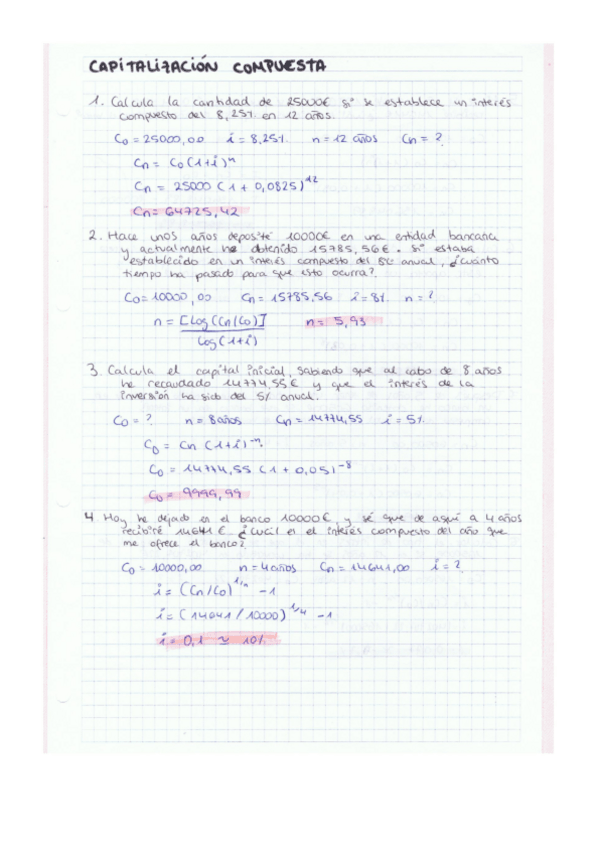 CAPITALIZACIÓN COMPUESTA
1. Calcula la cantidad de 25000€ si se establece un interés
compuesto del 8,25% en 12 años.
C₀ = 25000,00 i = 8,25% n = 12 años Cn = ?
Cn = C₀(1+i)ⁿ
Cn = 25000 (1 + 0,0825)¹²
Cn = 64725,42
2. Hace unos años deposité 10000€ en una entidad bancaria
y actualmente he obtenido 15785,56€. Si estaba
establecido en un interés compuesto del 8% anual, ¿cuánto
tiempo ha pasado para que esto ocurra?
C₀ = 10000,00 Cn = 15785,56 i = 8% n = ?
n = [Log(Cn/C₀)] n = 5,93
Log(1+i)
3. Calcula el capital inicial, sabiendo que al cabo de 8 años
he recaudado 14774,55€ y que el interés de la
inversión ha sido del 5% anual.
C₀ = ? n = 8 años Cn = 14774,55 i = 5%
C₀ = Cn (1+i)⁻ⁿ
C₀ = 14774,55 (1 + 0,05)⁻⁸
C₀ = 9999,99
4 Hoy he dejado en el banco 10000€, y sé que de aquí a 4 años
recibiré 14641€ ¿Cuál es el interés compuesto del año que
me ofrece el banco?
C₀ = 10000,00 n = 4 años Cn = 14641,00 i = ?
i = (Cn/C₀)^1/n - 1
i = (14641/10000)^1/4 - 1
i = 0,1 ≃ 10%